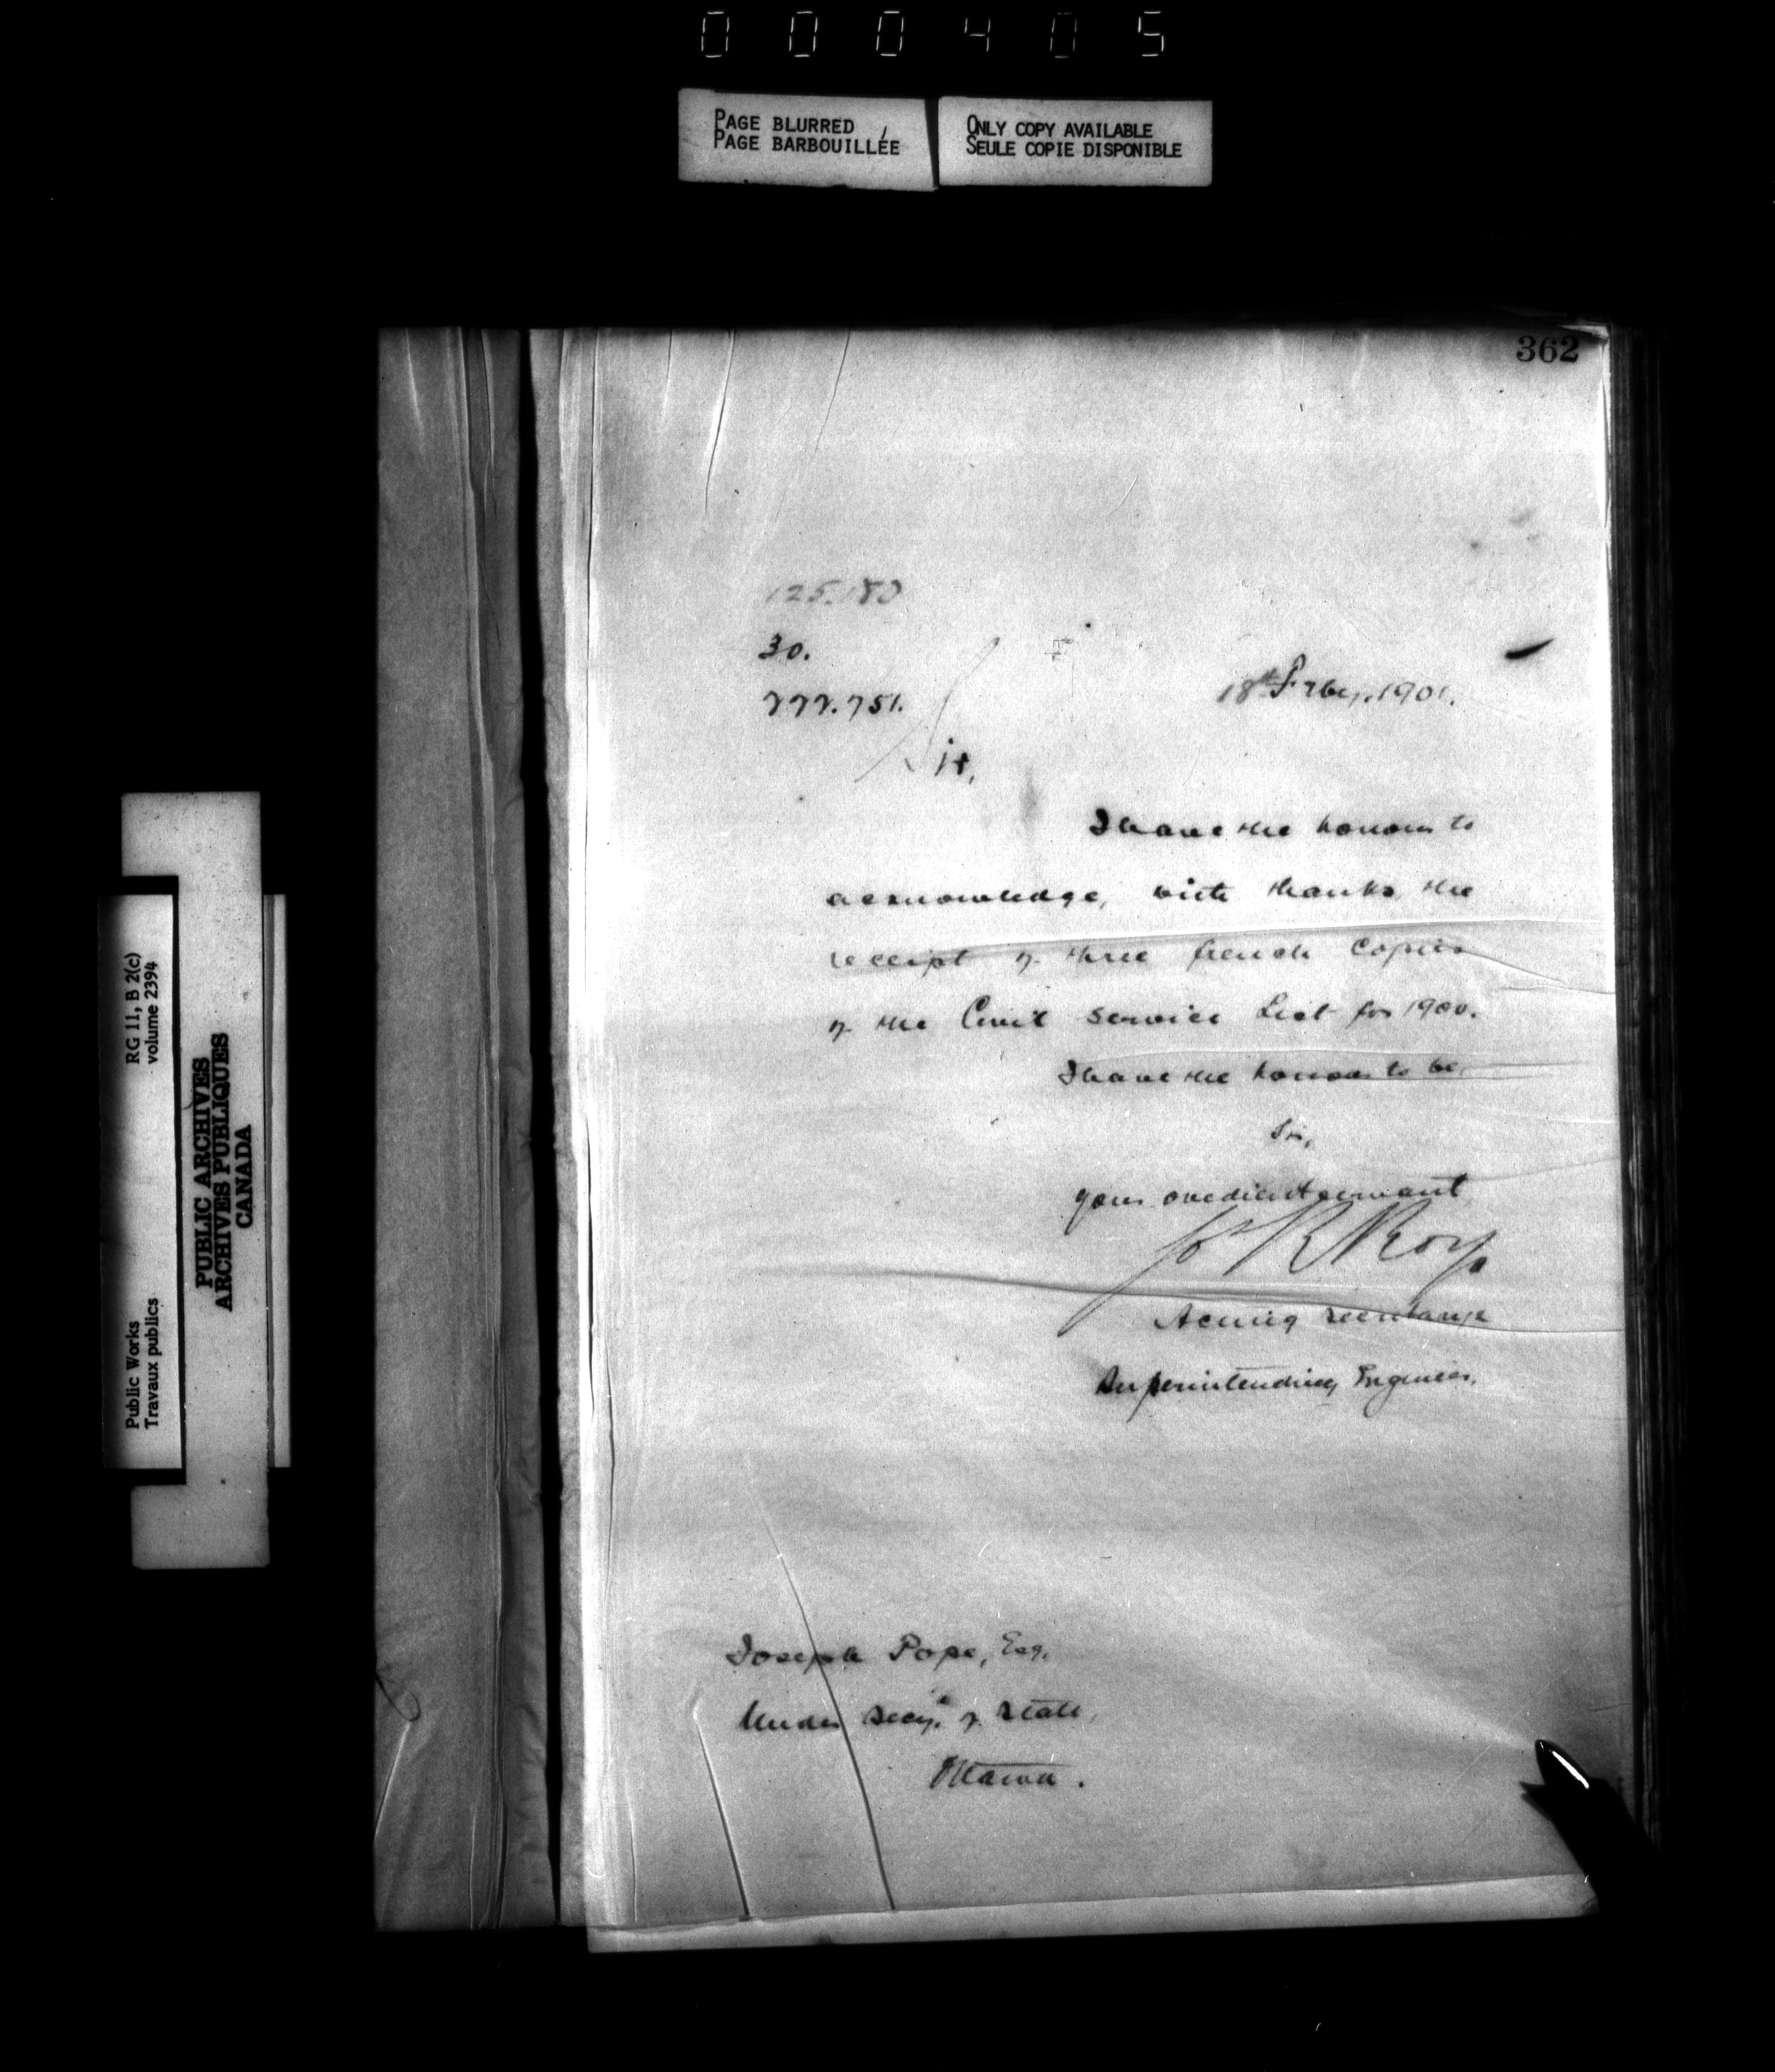 000405
PAGE BLURRED
PAGE BARBOUILLÉE
ONLY COPY AVAILABLE
SEULE COPIE DISPONIBLE
362
125.180
30.
222.751.
18th Feby. 1901.
Sir,
I have the honour to
acknowledge, with thanks the
receipt of three french copies
of the Civil Service List for 1900.
I have the honour to be,
Sir,
your obedient servant
Jos R Roy
Acting Secretary
Superintending Engineer.
Joseph Pope, Esq.
Under Secy. of State,
Ottawa.
RG 11, B 2(c)
volume 2394
Public Works
Travaux publics
PUBLIC ARCHIVES
ARCHIVES PUBLIQUES
CANADA